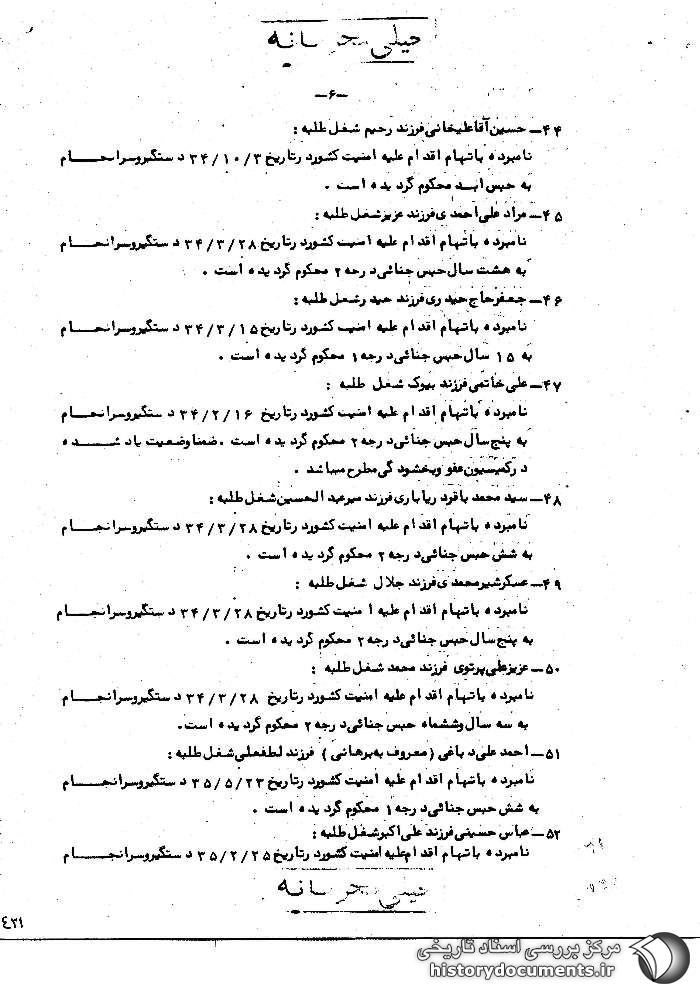 خیلی محرمانه
-۶-
۴۴- حسین آقاعلیخانی فرزند رحیم شغل طلبه :
نامبرده باتهام اقدام علیه امنیت کشور در تاریخ ۳۴/۱۰/۳ دستگیر و سرانجام
به حبس ابد محکوم گردیده است .
۴۵- مراد علی احمدی فرزند عزیز شغل طلبه :
نامبرده باتهام اقدام علیه امنیت کشور در تاریخ ۳۴/۳/۲۸ دستگیر و سرانجام
به هشت سال حبس جنائی درجه ۲ محکوم گردیده است .
۴۶- جعفر حاج حیدری فرزند حیدر شغل طلبه :
نامبرده باتهام اقدام علیه امنیت کشور در تاریخ ۳۴/۳/۱۵ دستگیر و سرانجام
به ۱۵ سال حبس جنائی درجه ۱ محکوم گردیده است .
۴۷- علی خاتمی فرزند بیوک شغل طلبه :
نامبرده باتهام اقدام علیه امنیت کشور در تاریخ ۳۴/۲/۱۶ دستگیر و سرانجام
به پنج سال حبس جنائی درجه ۲ محکوم گردیده است . ضمنا وضعیت یاد شده
در کمیسیون عفو وبخشودگی مطرح میباشد .
۴۸- سید محمد باقر دریاباری فرزند میرعبدالحسین شغل طلبه :
نامبرده باتهام اقدام علیه امنیت کشور در تاریخ ۳۴/۳/۲۸ دستگیر و سرانجام
به شش حبس جنائی درجه ۲ محکوم گردیده است .
۴۹- عسکر شیرمحمدی فرزند جلال شغل طلبه :
نامبرده باتهام اقدام علیه امنیت کشور در تاریخ ۳۴/۳/۲۸ دستگیر و سرانجام
به پنج سال حبس جنائی درجه ۲ محکوم گردیده است .
۵۰- عزیزعلی پرتوی فرزند محمد شغل طلبه :
نامبرده باتهام اقدام علیه امنیت کشور در تاریخ ۳۴/۳/۲۸ دستگیر و سرانجام
به سه سال وششماه حبس جنائی درجه ۲ محکوم گردیده است.
۵۱- احمد علی دباغی (معروف به برهانی) فرزند لطفعلی شغل طلبه :
نامبرده باتهام اقدام علیه امنیت کشور در تاریخ ۳۵/۵/۲۳ دستگیر و سرانجام
به شش حبس جنائی درجه ۱ محکوم گردیده است .
۵۲- عباس حسینی فرزند علی اکبر شغل طلبه :
نامبرده باتهام اقدام علیه امنیت کشور در تاریخ ۳۵/۲/۲۵ دستگیر و سرانجام
خیلی محرمانه
٤٣١
مرکز بررسی اسناد تاریخی
historydocuments.ir